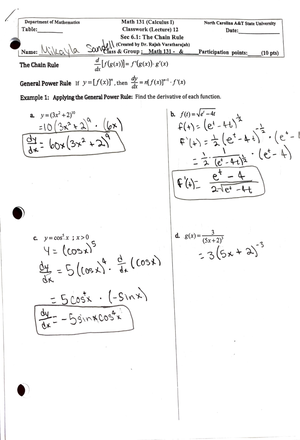 Department of Mathematics
Math 131 (Calculus I)
North Carolina A&T State University
Table:
Classwork (Lecture) 12
Date:
Sec 6.1: The Chain Rule
(Created by Dr. Rajah Varatharajah)
Name: Mikayla Sandell
Class & Group : Math 131 - &
Participation points: (10 pts)
The Chain Rule d/dx [f(g(x))] = f'(g(x)) · g'(x)
General Power Rule If y = [f(x)]ⁿ, then dy/dx = n(f(x))ⁿ⁻¹ · f'(x)
Example 1: Applying the General Power Rule: Find the derivative of each function.
a. y = (3x² + 2)¹⁰
= 10(3x² + 2)⁹ · (6x)
dy/dx = 60x(3x² + 2)⁹
b. f(t) = √(eᵗ - 4t)
f(t) = (eᵗ - 4t)^½
f'(t) = ½(eᵗ - 4t)^-½ · (eᵗ -
= ½ · 1/(eᵗ - 4t)^½ · (eᵗ - 4)
f'(t) = (eᵗ - 4)/(2√(eᵗ - 4t))
c. y = cos⁵ x ; x > 0
y = (cos x)⁵
dy/dx = 5(cos x)⁴ · d/dx (cos x)
= 5cos⁴x · (-sin x)
dy/dx = -5 sin x cos⁴x
d. g(x) = 3/(5x + 2)
= 3(5x + 2)